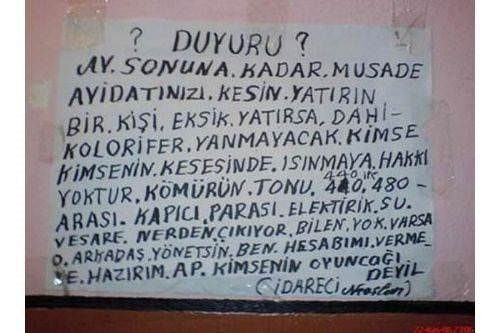 ? DUYURU ?
AY. SONUNA. KADAR. MUSADE
AYIDATINIZI. KESİN. YATIRIN
BİR. KİŞİ, EKSİK. YATIRSA, DAHİ-
KOLORİFER, YANMAYACAK. KİMSE
KİMSENİN. KESESİNDE. ISINMAYA. HAKKI
YOKTUR. KÖMÜRÜN. TONU. 440, 480-
ARASI. KAPICI, PARASI. ELEKTİRİK. SU.
VESARE. NERDEN, ÇIKIYOR, BİLEN, YOK. VARSA
O. ARKADAŞ. YÖNETSİN. BEN. HESABIMI. VERME-
YE. HAZIRIM. AP. KİMSENİN OYUNCAĞI
DEYİL
(İDARECİ